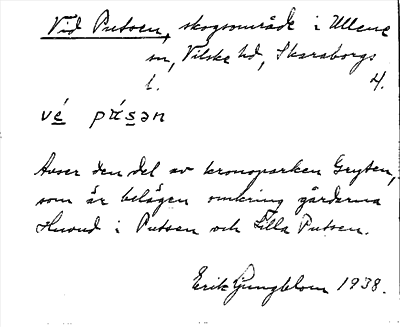 Vid Putsen, skogsområde i Ullene
sn, Vilske hd, Skaraborgs
l. 4.
vé pɯ́sən
Avser den del av kronoparken Gryten,
som är belägen omkring gårdarna
i Putsen och Lilla Putsen.
Erik Ljungblom 1938.